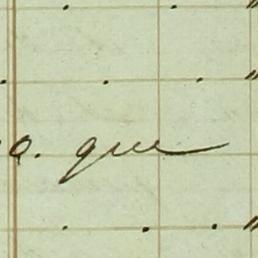 a. que